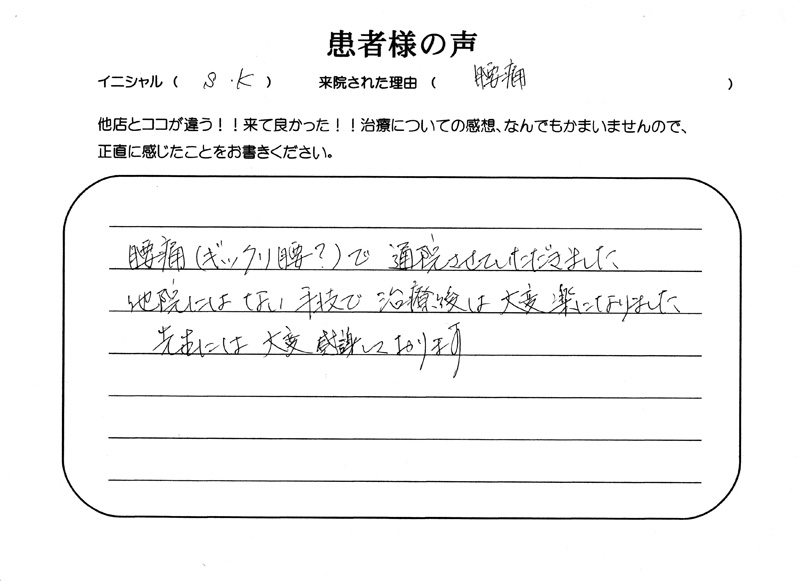 患者様の声
イニシャル（ S.K ） 来院された理由（ 腰痛 ）
他店とココが違う！！来て良かった！！治療についての感想、なんでもかまいませんので、
正直に感じたことをお書きください。
腰痛（ギックリ腰？）で 通院させていただきました
他院にはない手技で 治療後は大変楽になりました
先生には大変感謝しております